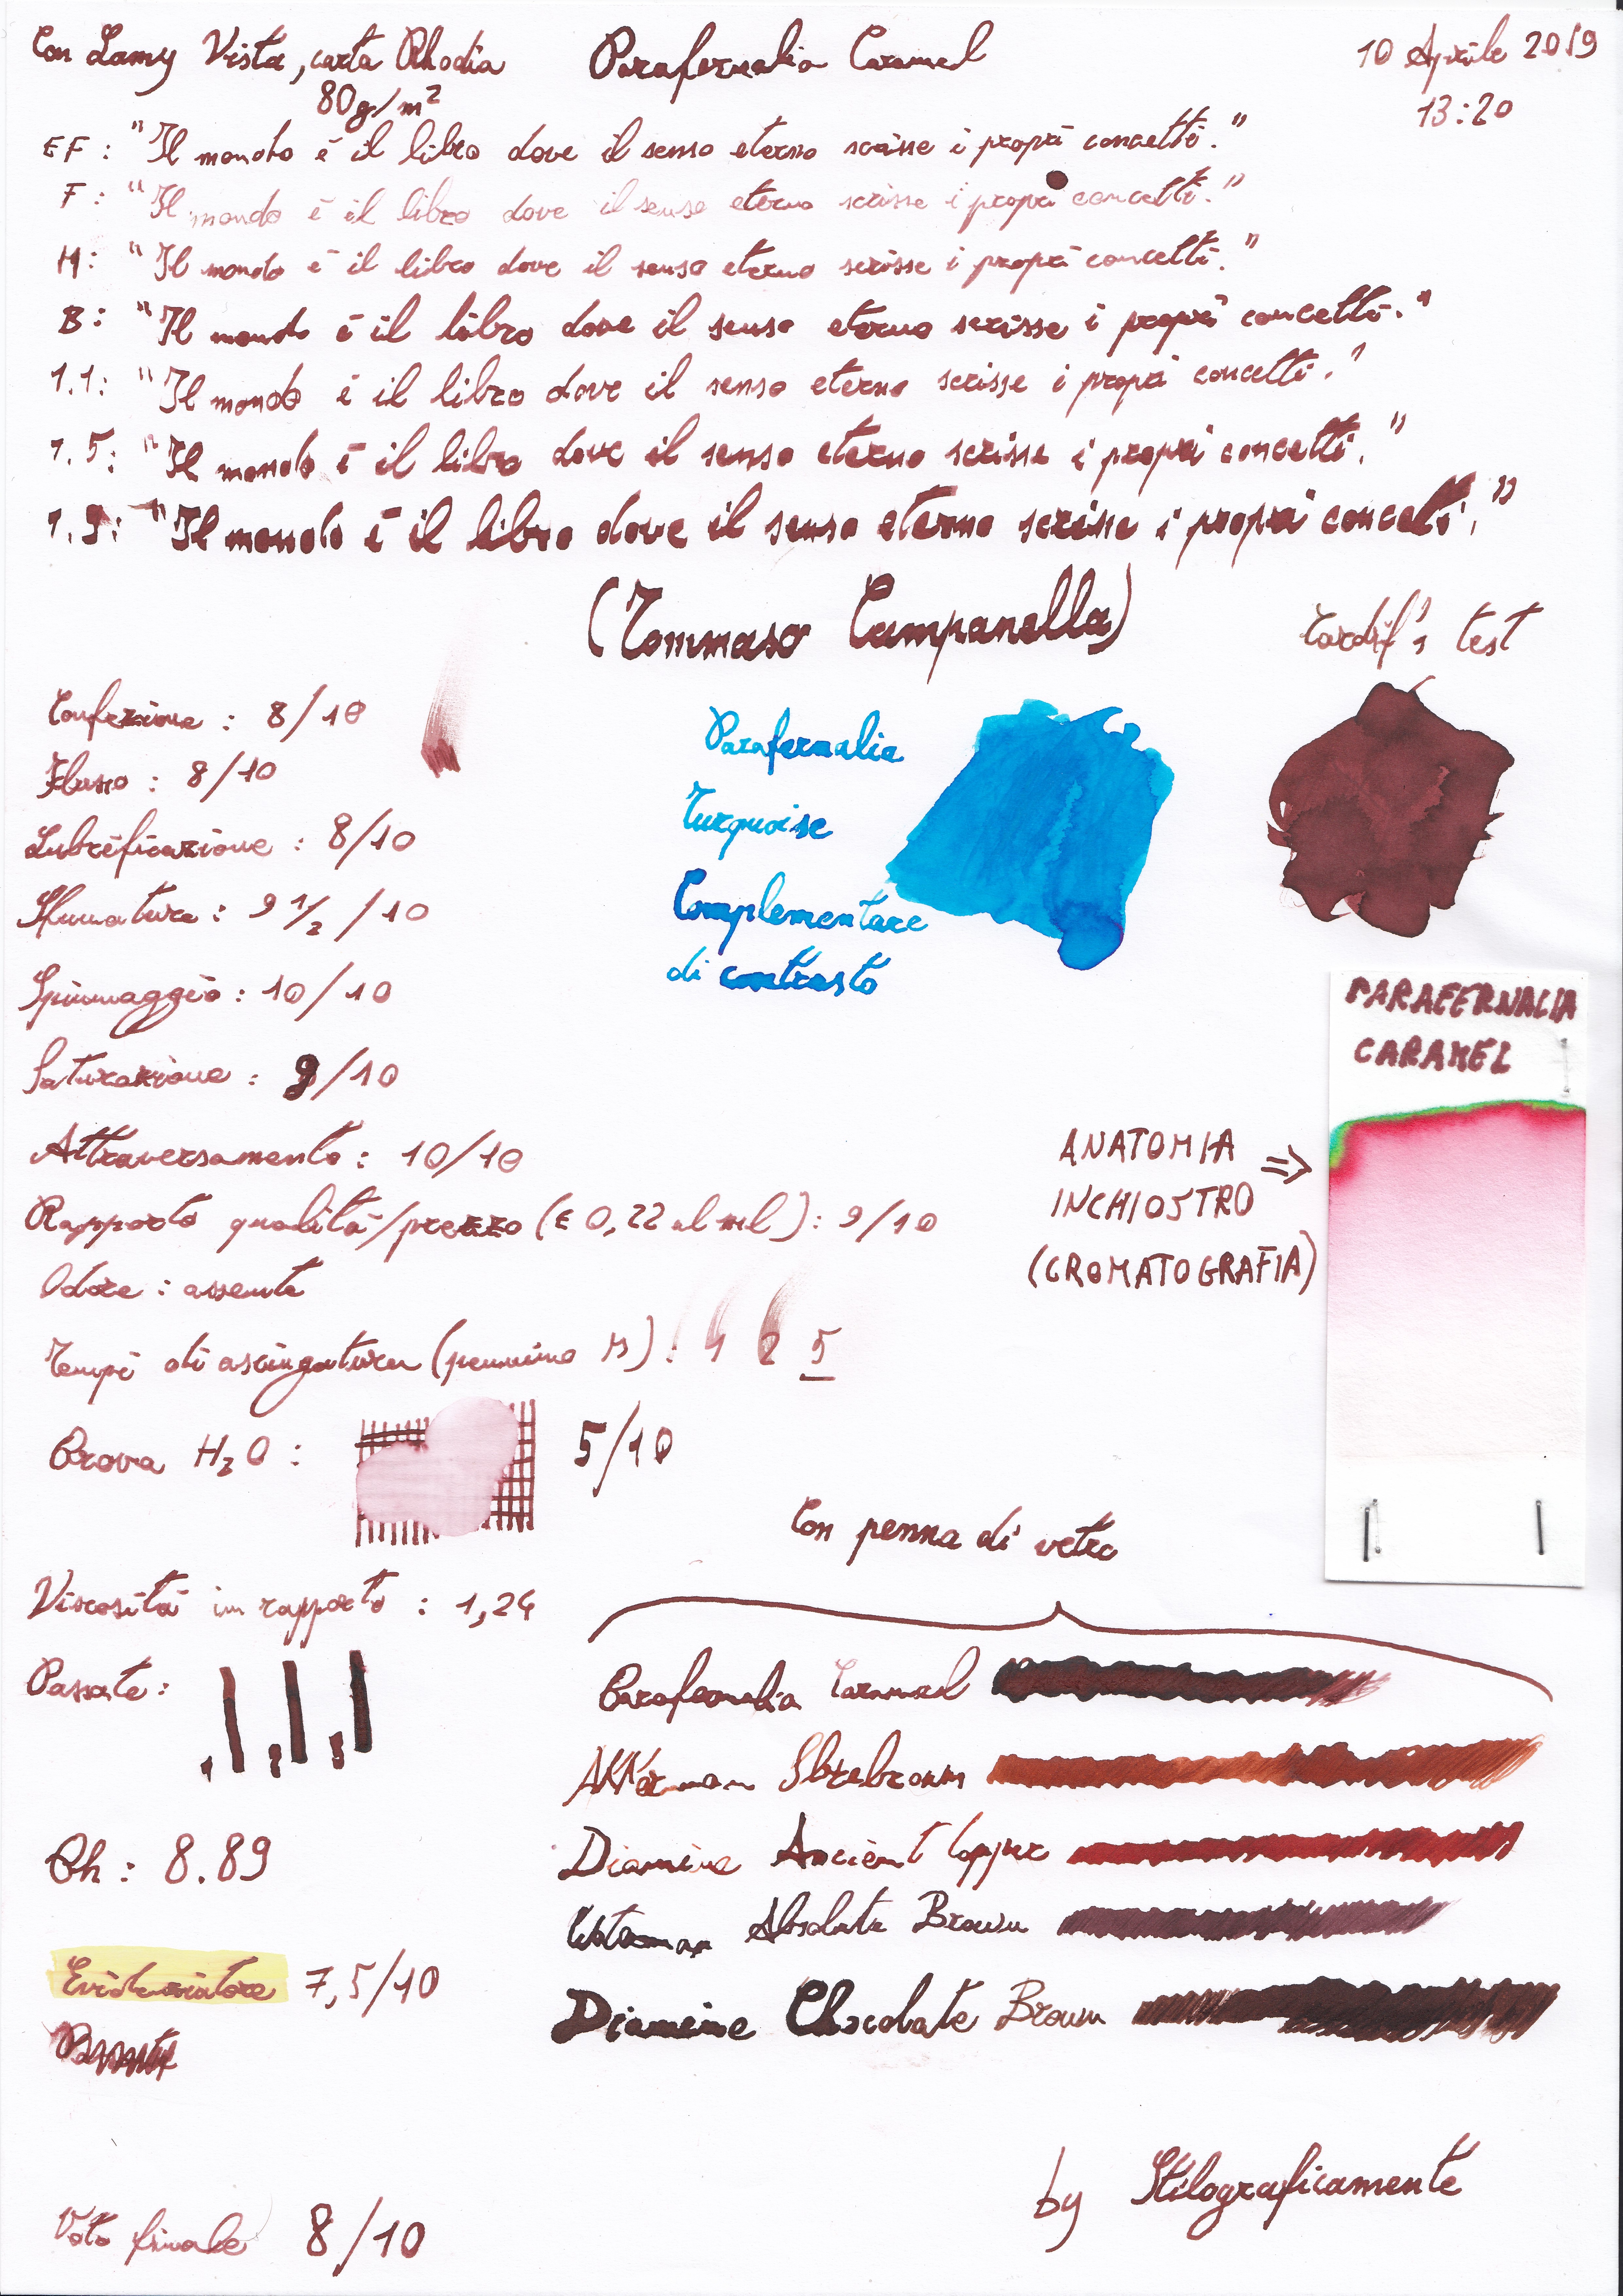 Con Lamy Vista, carta Rhodia
80g/m²
Parafernalia Caramel
10 Aprile 2019
13:20
EF: "Il mondo è il libro dove il senso eterno scrisse i propri concetti."
F: "Il mondo è il libro dove il senso eterno scrisse i propri concetti."
M: "Il mondo è il libro dove il senso eterno scrisse i propri concetti."
B: "Il mondo è il libro dove il senso eterno scrisse i propri concetti."
1.1: "Il mondo è il libro dove il senso eterno scrisse i propri concetti."
1.5: "Il mondo è il libro dove il senso eterno scrisse i propri concetti."
1.9: "Il mondo è il libro dove il senso eterno scrisse i propri concetti."
(Tommaso Campanella)
test
Confezione: 8/10
Flusso: 8/10
Lubrificazione: 8/10
Sfumature: 9 1/2 /10
Spiumaggio: 10/10
Saturazione: 9/10
Attraversamento: 10/10
Rapporto qualità/prezzo (€ 0,22 al ml): 9/10
Odore: assente
Tempi di asciugatura (pennino M): 1 2 5
Prova H₂O: 5/10
Viscosità in rapporto: 1,24
Passate: 1 2 3
Ph: 8.89
Evidenziatore 7,5/10
Voto finale 8/10
Parafernalia
Turquoise
Complementare
di contrasto
PARAFERNALIA
CARAMEL
ANATOMIA =>
INCHIOSTRO
(CROMATOGRAFIA)
Con penna di vetro
Parafernalia Caramel
Akkerman Sbrebrown
Diamine Ancient Copper
Waterman Absolute Brown
Diamine Chocolate Brown
by Stilograficamente